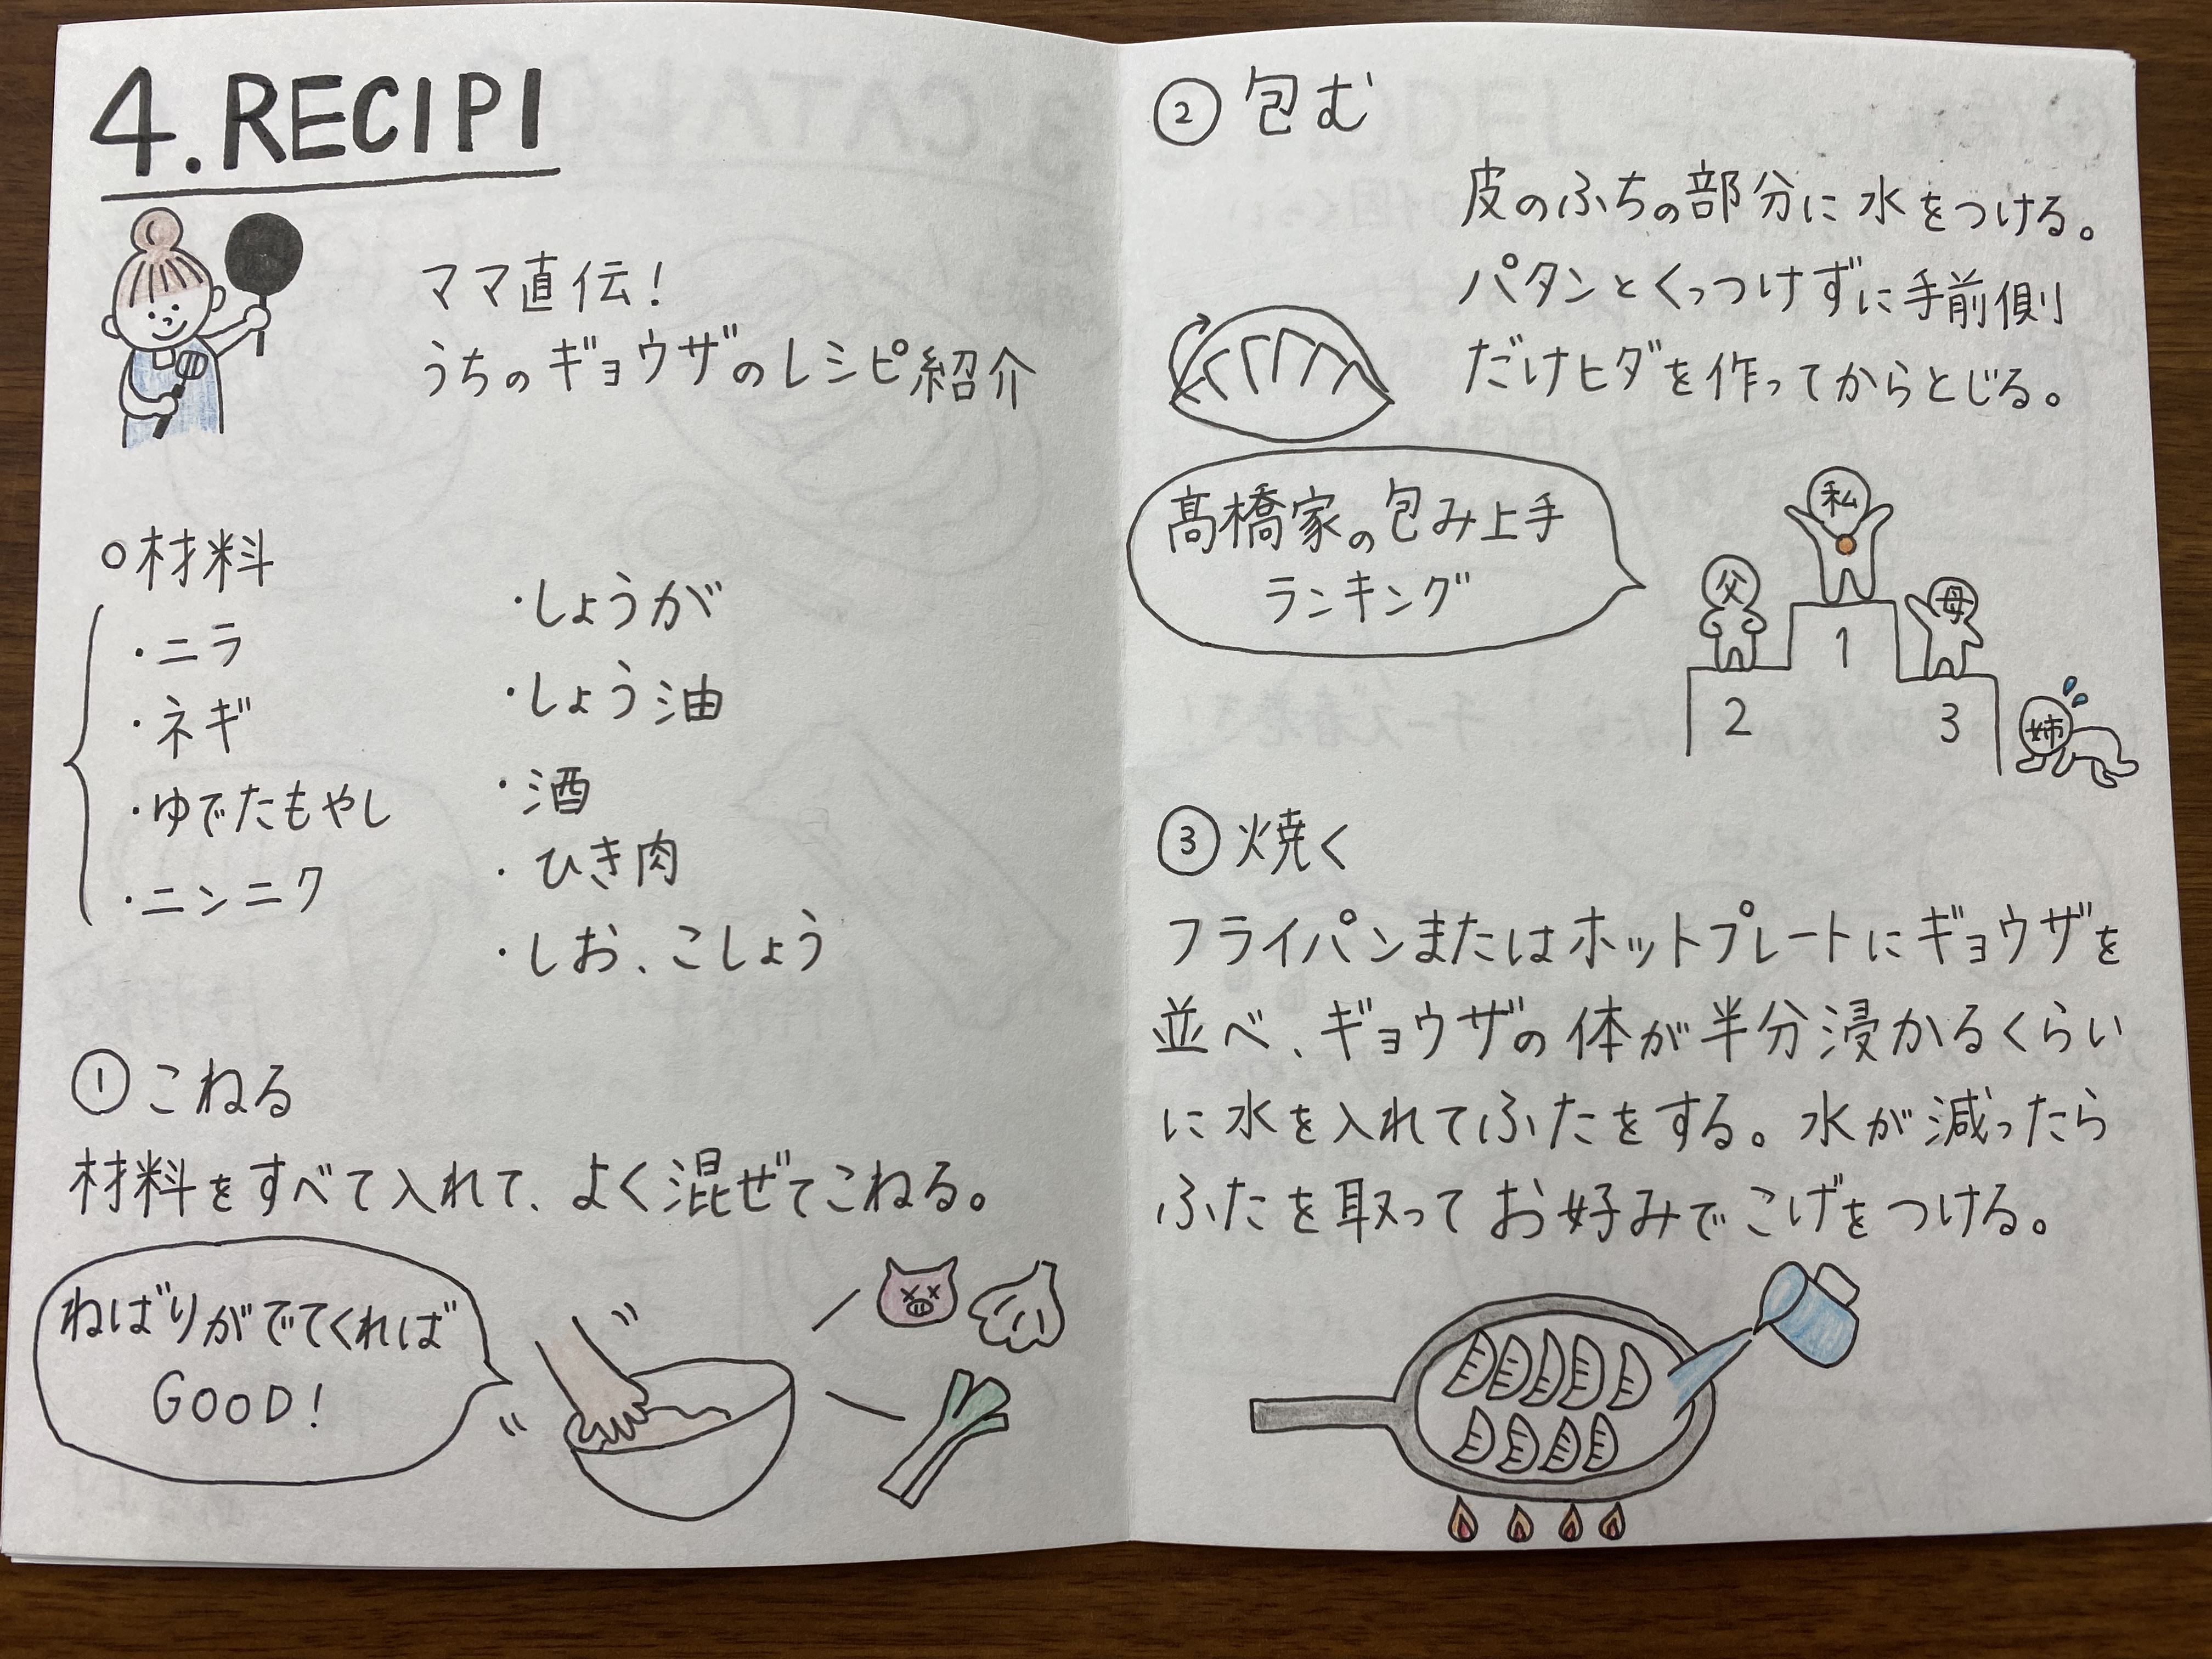 4.RECIPI
ママ直伝!
うちのギョウザのレシピ紹介
○材料
・ニラ
・ネギ
・ゆでたもやし
・ニンニク
・しょうが
・しょう油
・酒
・ひき肉
・しお、こしょう
① こねる
材料をすべて入れて、よく混ぜてこねる。
ねばりがでてくれば
GOOD!
② 包む
皮のふちの部分に水をつける。
パタンとくっつけずに手前側
だけヒダを作ってからとじる。
高橋家の包み上手
ランキング
父
私
母
姉
2
1
3
③ 焼く
フライパンまたはホットプレートにギョウザを
並べ、ギョウザの体が半分浸かるくらい
に水を入れてふたをする。水が減ったら
ふたを取ってお好みでこげをつける。